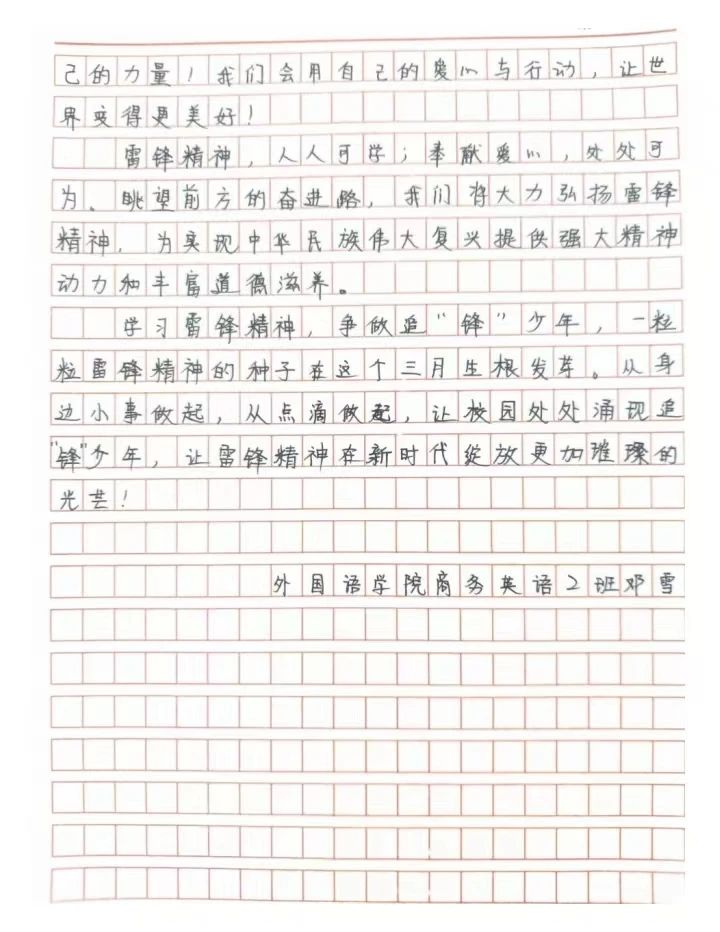 己的力量！我们会用自己的爱心与行动，让世
界变得更美好！
雷锋精神，人人可学；奉献爱心，处处可
为。眺望前方的奋进路，我们将大力弘扬雷锋
精神，为实现中华民族伟大复兴提供强大精神
动力和丰富道德滋养。
学习雷锋精神，争做追“锋”少年，一粒
粒雷锋精神的种子在这个三月生根发芽。从身
边小事做起，从点滴做起，让校园处处涌现追
“锋”少年，让雷锋精神在新时代绽放更加璀璨的
光芒！
外国语学院商务英语2班邓雪